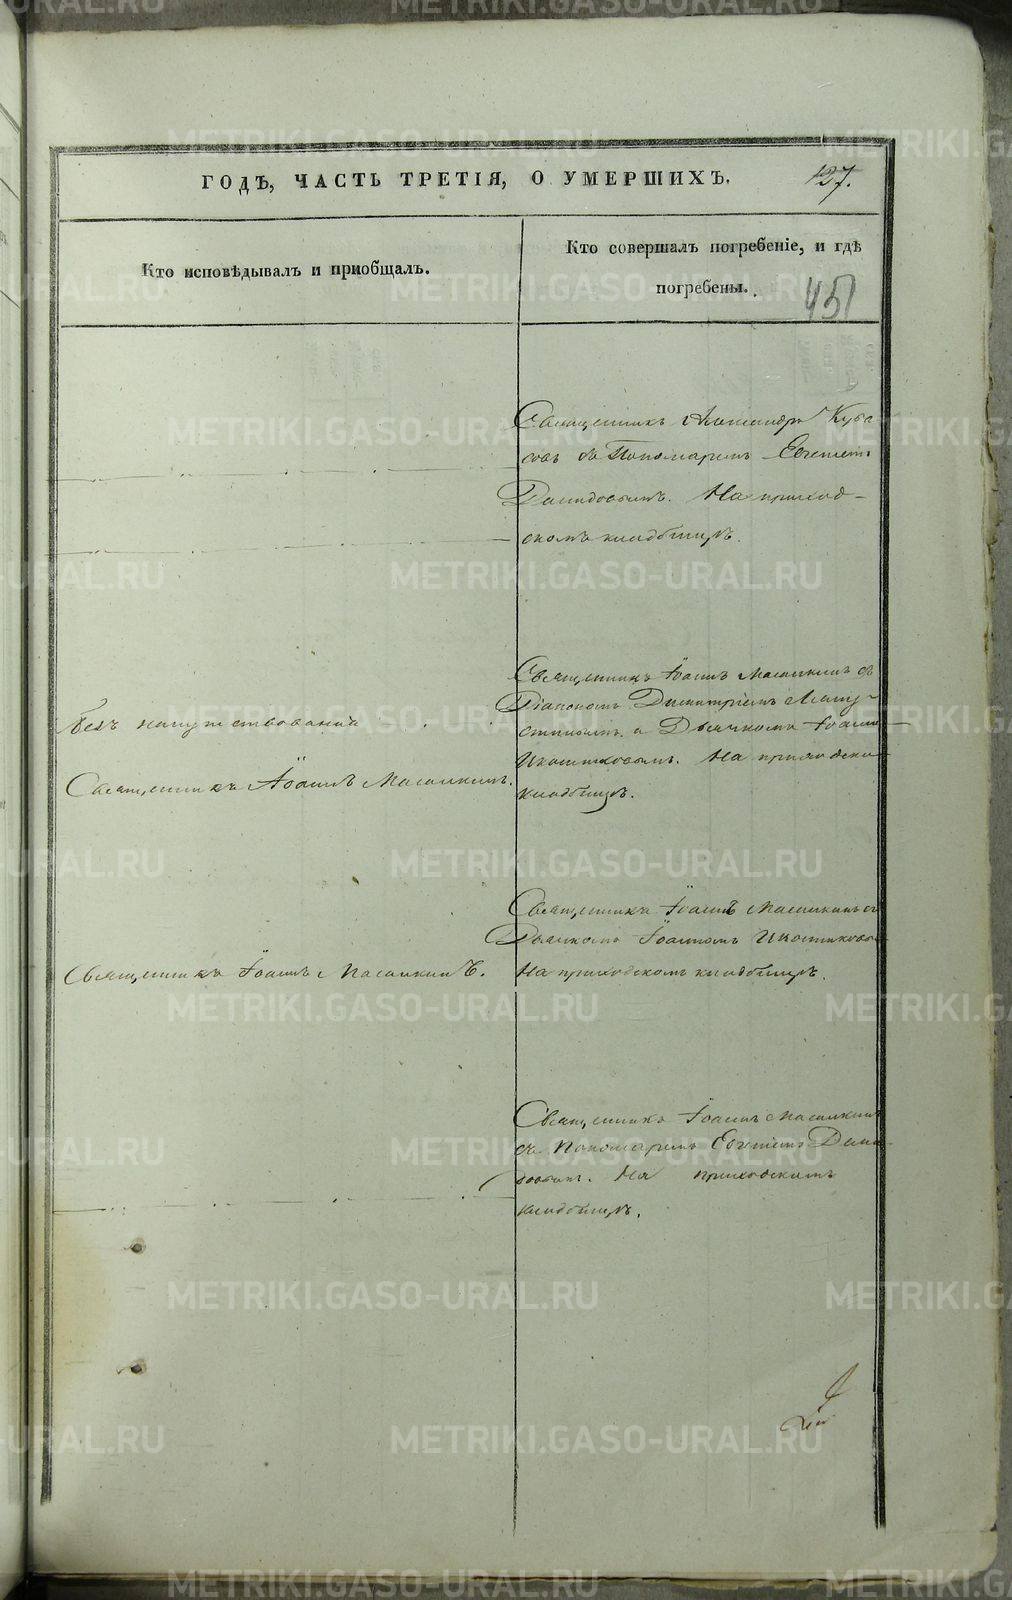 ГОДЪ, ЧАСТЬ ТРЕТІЯ, О УМЕРШИХЪ.
127.
Кто исповѣдывалъ и пріобщалъ.
Кто совершалъ погребеніе, и гдѣ
погребены.
451
Священникъ Александръ
съ Пономаремъ Евгеніемъ
Давидовымъ. На приход-
скомъ кладбищѣ.
Безъ напутствованія
Священникъ Іоаннъ Масалкинъ.
Священникъ Іоаннъ Масалкинъ съ
Діакономъ Димитріемъ
и Дьячкомъ Іоанно
Иконниковымъ. На приходско
кладбищѣ.
Священникъ Іоаннъ Масалкинъ.
Священникъ Іоаннъ Масалкинъ съ
Дьячкомъ Іоанномъ Иконниковы
На приходскомъ кладбищѣ.
Священникъ Іоаннъ Масалкинъ
съ Пономаремъ Евгеніемъ Дави-
довым. На приходскомъ
кладбищѣ.
METRIKI.GASO-URAL.RU